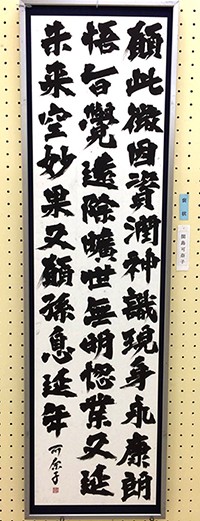 願此微因資潤神識現身永康朗
悟旨覺遠除曠世無明惚業又延
未来空妙果又願孫息延年
可奈子